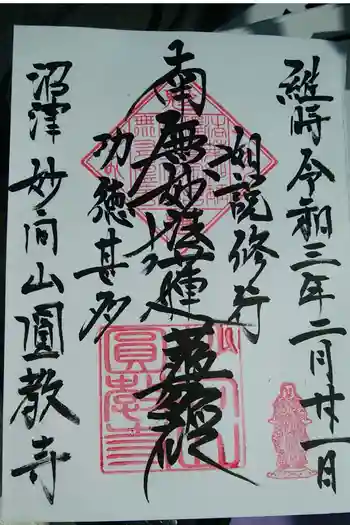 維時令和三年二月廿一日
如説修行
南無妙法蓮華経
功徳甚多
沼津妙向山圓教寺